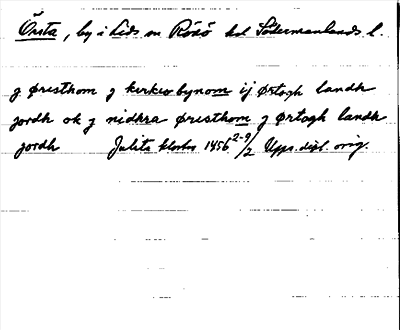 Örsta, by i Lids sn Rönö hd Södermanlands l.
j øresthom j kerkio bynom ij ørtogh landh
jordh ok j nidhra øresthom j ørtogh landh
jordh Julita kloster 1456 2-9/2 Upps. dipl. orig.